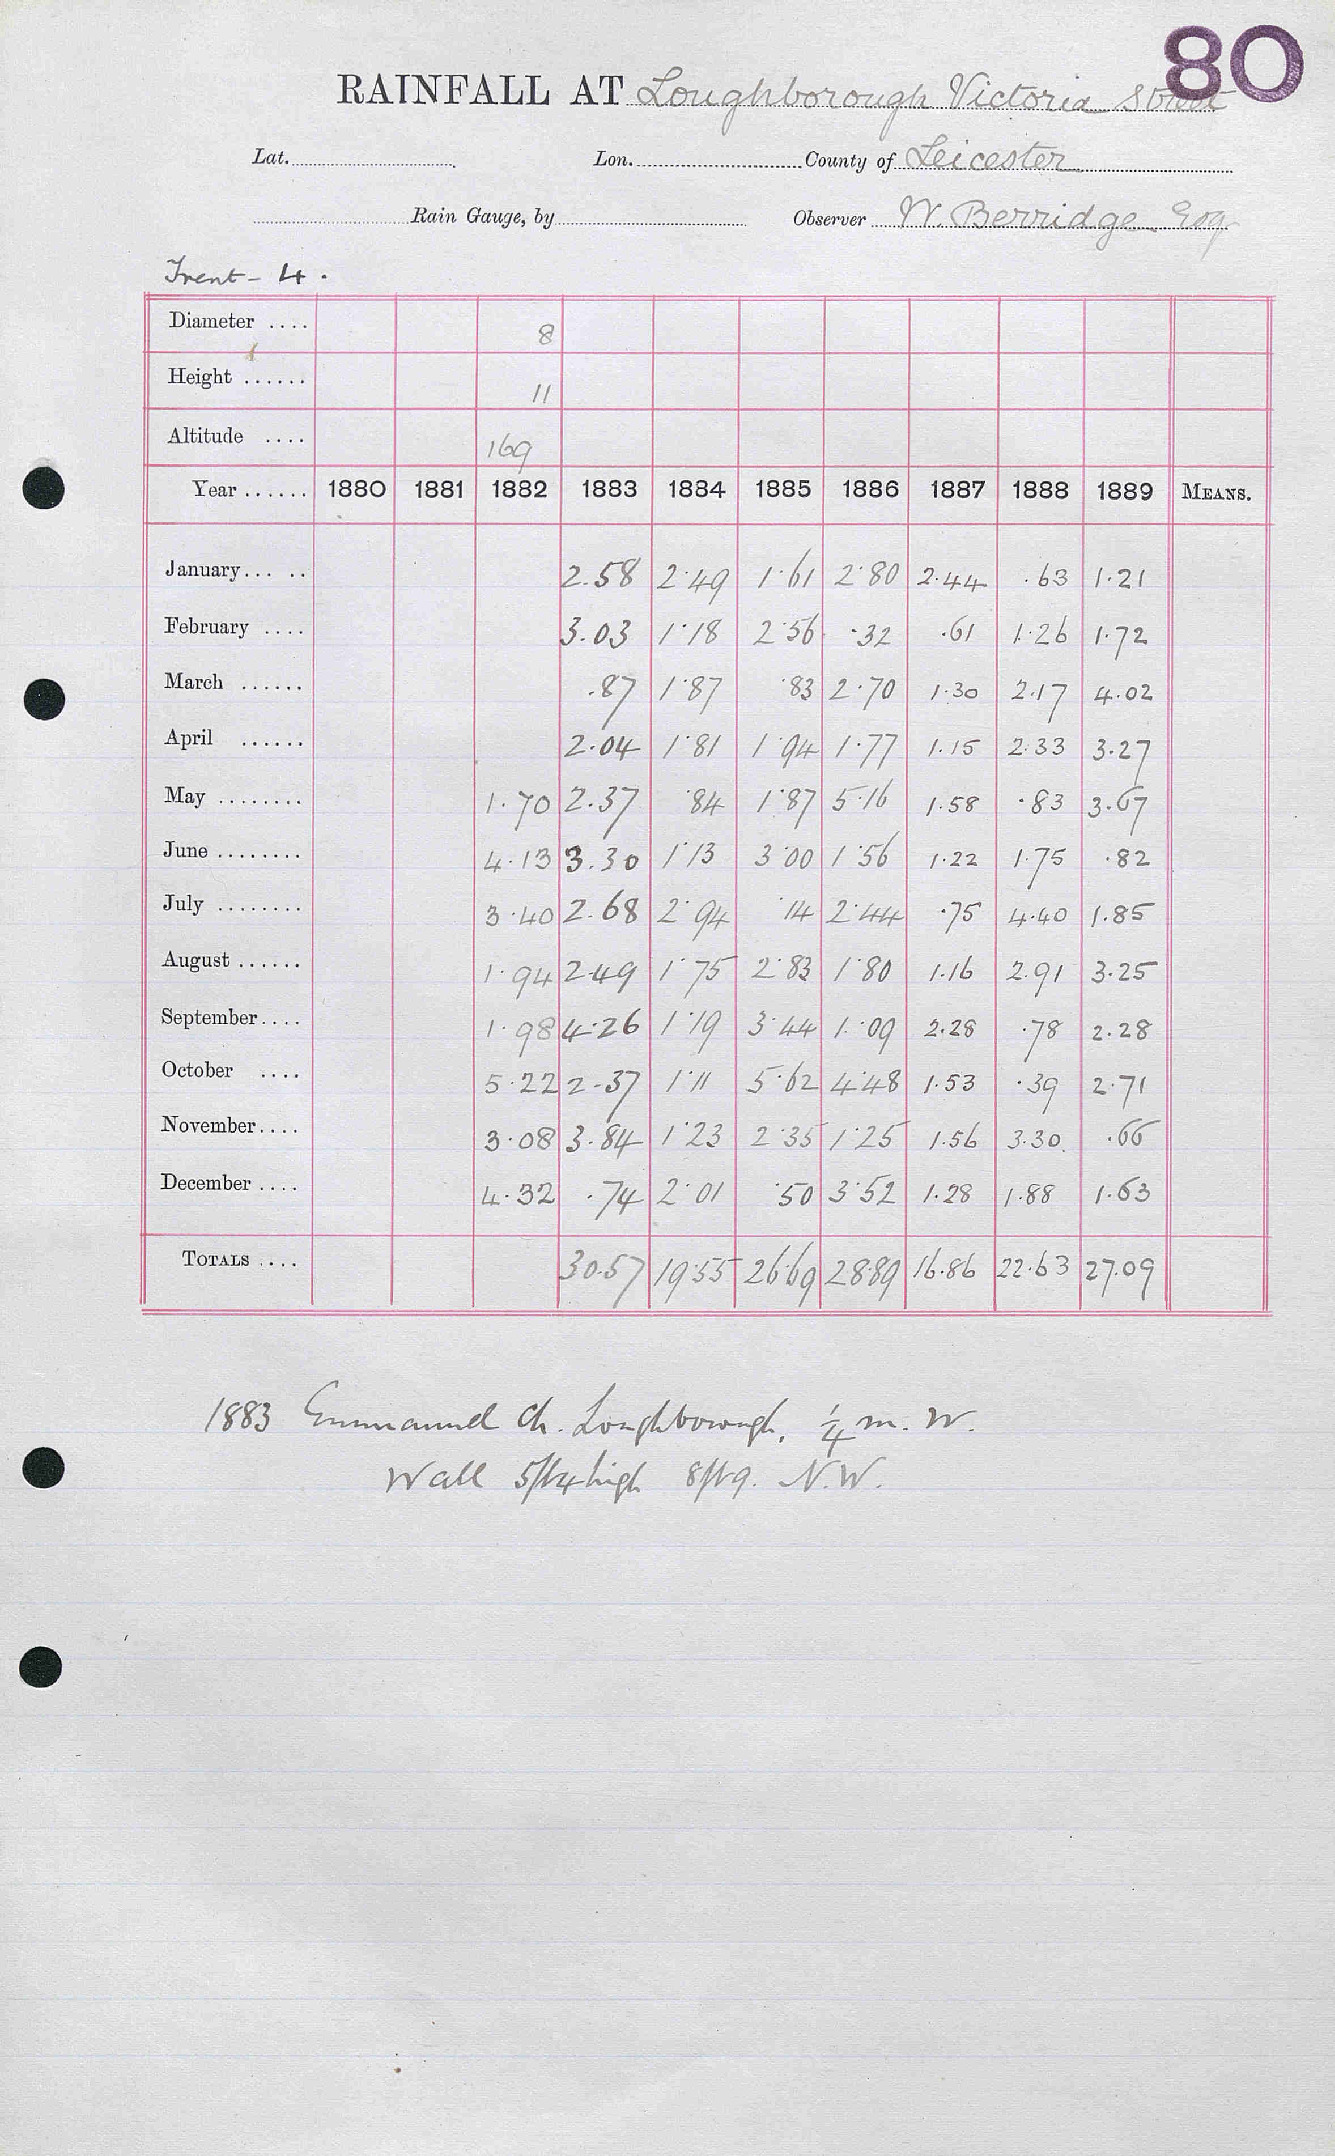 80
RAINFALL AT Loughborough Victoria Street
Lat. Lon. County of Leicester
Rain Gauge, by Observer W. Berridge Esq
Trent - 4.
Diameter .... 8
Height ...... 11
Altitude .... 169
Year ...... 1880 1881 1882 1883 1884 1885 1886 1887 1888 1889 MEANS.
January... .. 2.58 2.49 1.61 2.80 2.44 .63 1.21
February .... 3.03 1.18 2.56 .32 .61 1.26 1.72
March ...... .87 1.87 .83 2.70 1.30 2.17 4.02
April ...... 2.04 1.81 1.94 1.77 1.15 2.33 3.27
May ........ 1.70 2.37 .84 1.87 5.16 1.58 .83 3.67
June ........ 4.13 3.30 1.13 3.00 1.56 1.22 1.75 .82
July ........ 3.40 2.68 2.94 .14 2.44 .75 4.40 1.85
August ...... 1.94 2.49 1.75 2.83 1.80 1.16 2.91 3.25
September.... 1.98 4.26 1.19 3.44 1.09 2.28 .78 2.28
October .... 5.22 2.37 1.11 5.62 4.48 1.53 .39 2.71
November.... 3.08 3.84 1.23 2.35 1.25 1.56 3.30 .66
December .... 4.32 .74 2.01 .50 3.52 1.28 1.88 1.63
TOTALS .... 30.57 19.55 26.69 28.89 16.86 22.63 27.09
1883 Emmanuel Ch. Loughborough, 1/4 m. W.
Wall 5ft 4 high 8ft 9. N.W.